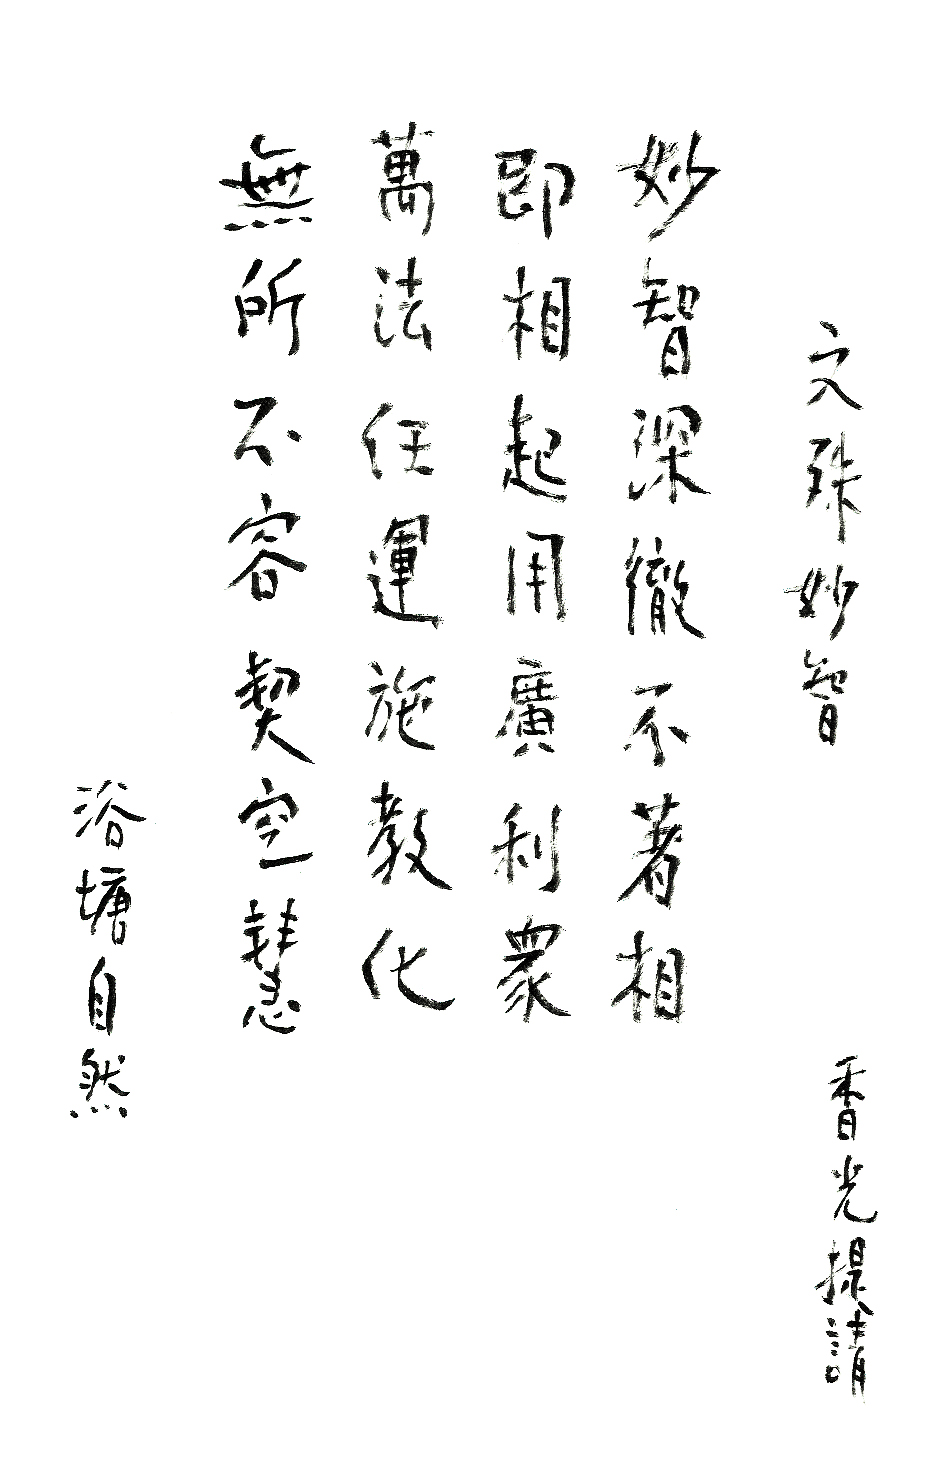 文殊妙智
香光提請
妙智深徹不著相
即相起用廣利眾
萬法任運施教化
無所不容契空慧
浴塘自然